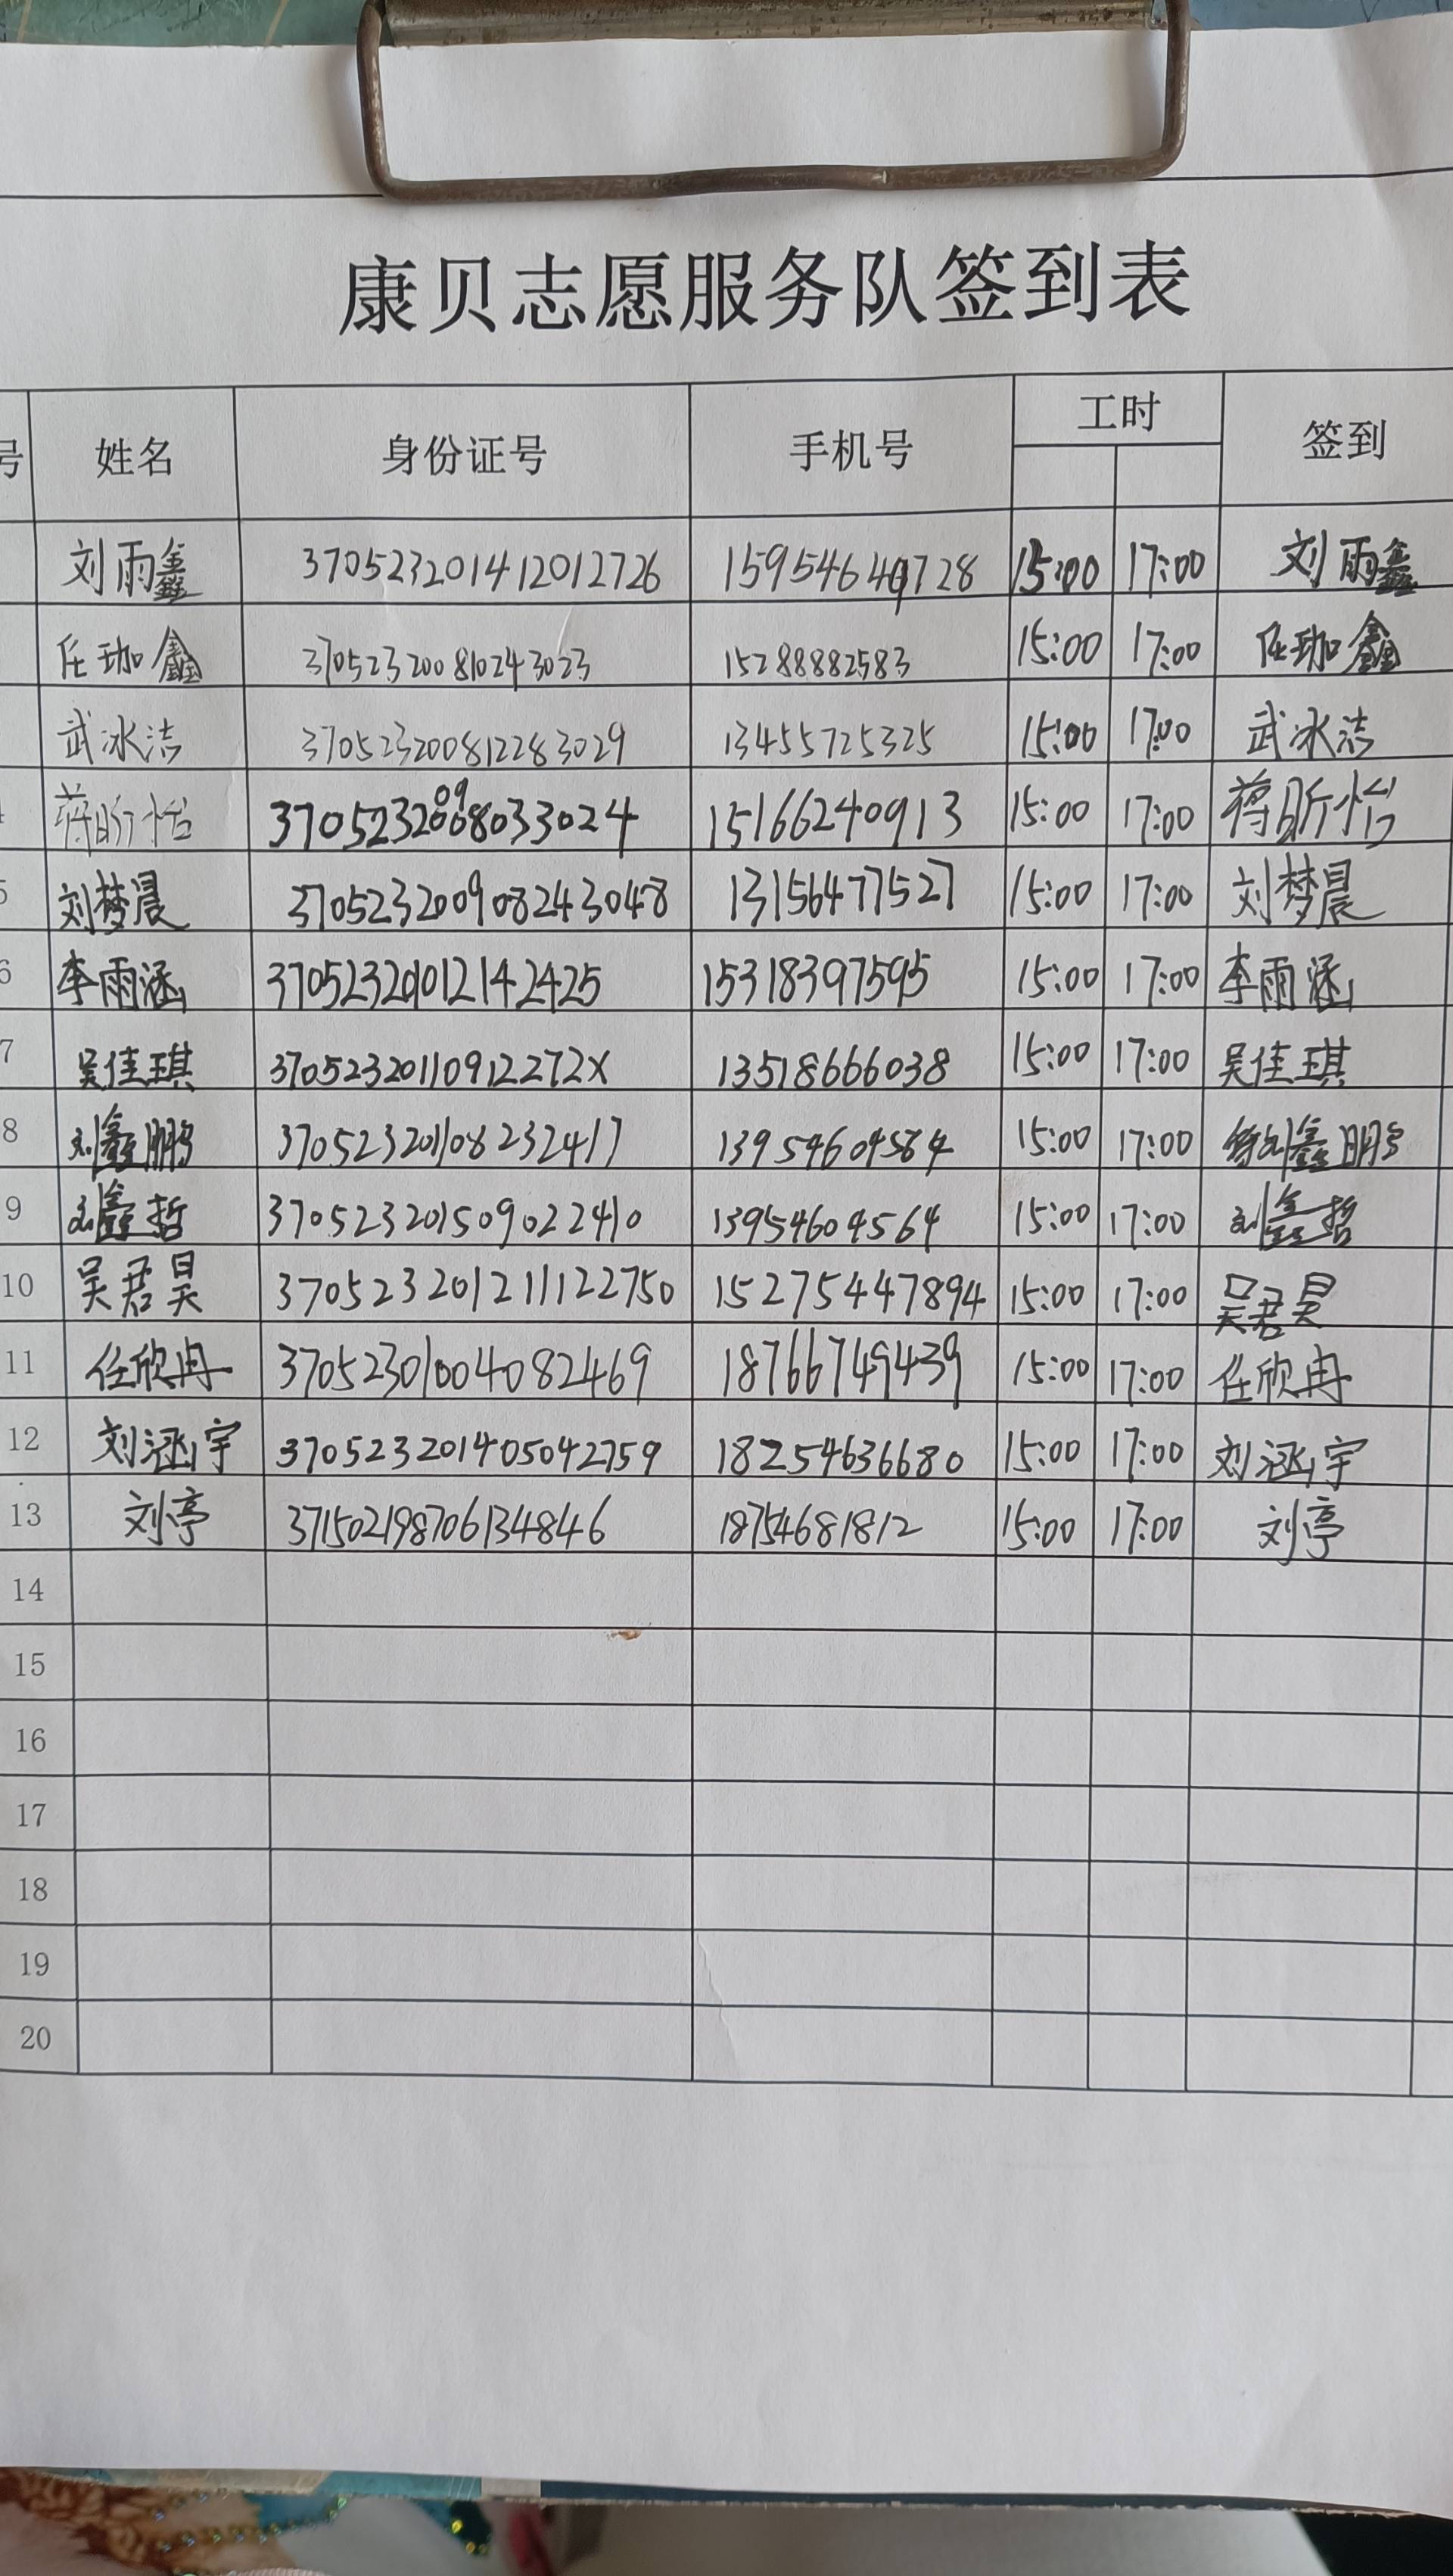 康贝志愿服务队签到表
号 姓名 身份证号 手机号 工时 签到
刘雨鑫 370523201412012726 15954640728 15:00 17:00 刘雨鑫
任珈鑫 370523200810243023 15288882583 15:00 17:00 任珈鑫
武冰洁 370523200812283029 13455725325 15:00 17:00 武冰洁
蒋昕怡 15166240913 15:00 17:00 蒋昕怡
5 刘梦晨 370523200908243048 13156477527 15:00 17:00 刘梦晨
6 李雨涵 370523201012142425 15318397595 15:00 17:00 李雨涵
7 吴佳琪 37052320110912272X 13518666038 15:00 17:00 吴佳琪
8 刘鑫鹏 370523201108232417 13954604564 15:00 17:00 刘鑫鹏
9 刘鑫哲 370523201509022410 13954604564 15:00 17:00 刘鑫哲
10 吴君昊 370523201211122750 15275447894 15:00 17:00 吴君昊
11 任欣冉 37052301004082469 18766749439 15:00 17:00 任欣冉
12 刘涵宇 370523201405042759 18254636680 15:00 17:00 刘涵宇
13 刘亭 371502198706134846 18754681812 15:00 17:00 刘亭
14
15
16
17
18
19
20